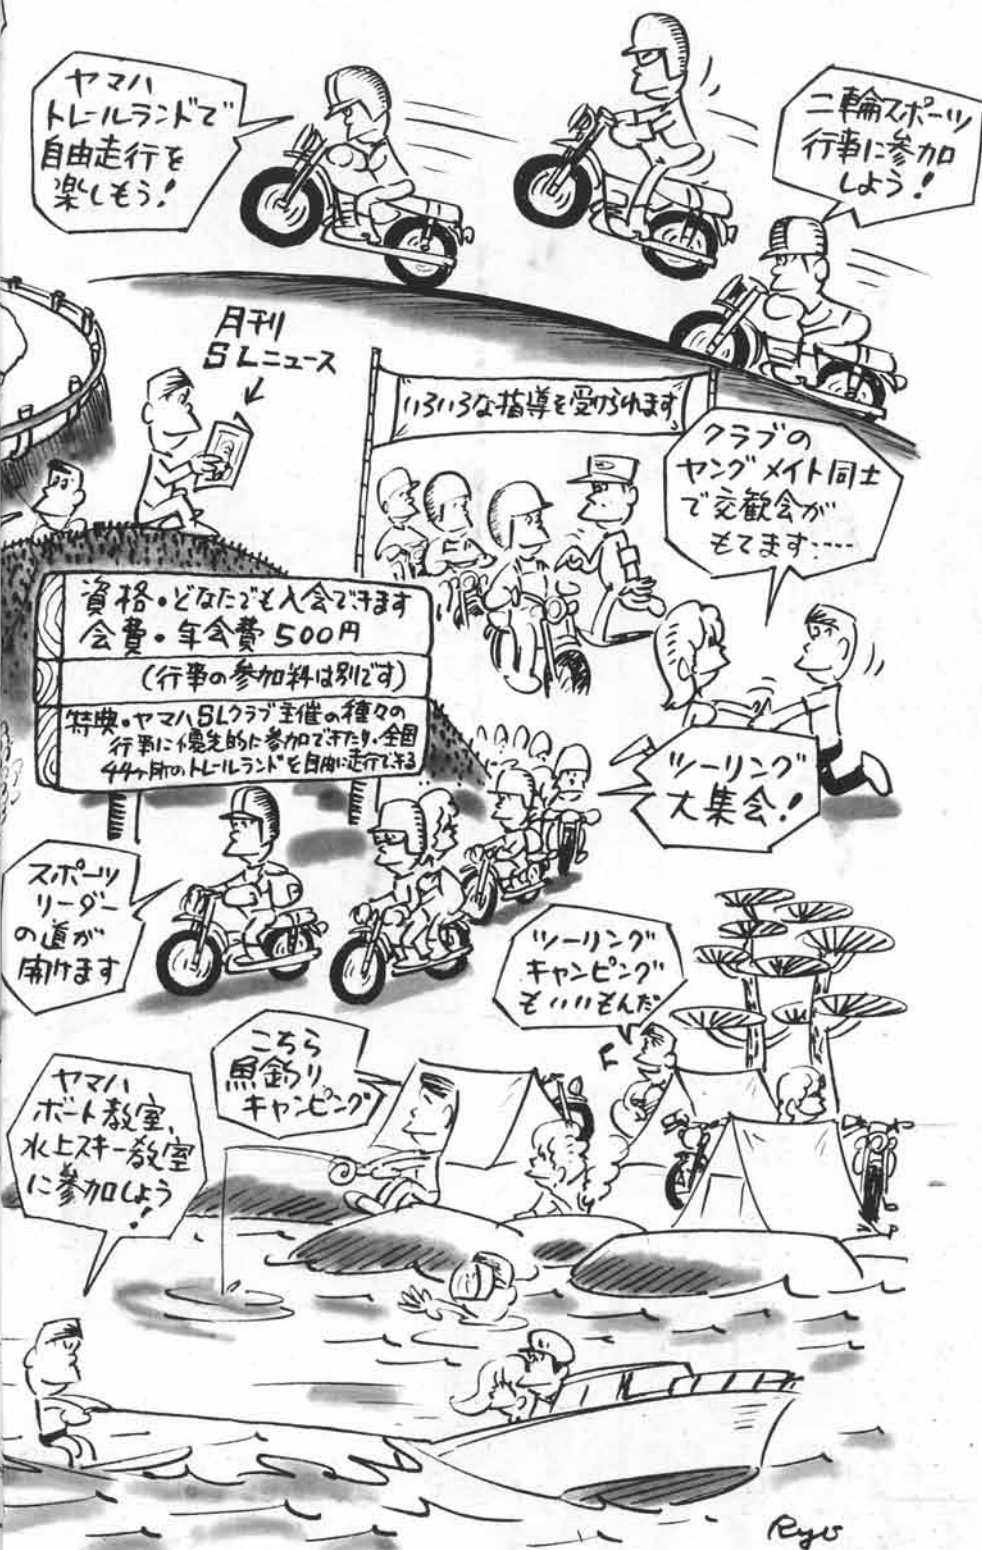 ヤマハ
トレールランドで
自由走行を
楽しもう!
二輪スポーツ
行事に参加
しよう!
月刊
SLニュース
いろいろな指導を受けられます
クラブの
ヤングメイト同士
で交歓会が
もてます.....
資格・どなたでも入会できます
会費・年会費500円
(行事の参加料は別です)
特典・ヤマハSLクラブ主催の種々の
行事に優先的に参加できたり、全国
44ヶ所のトレールランドを自由に走行できる
ツーリング
大集会!
スポーツ
リーダー
の道が
開けます
ツーリング
キャンピング
もいいもんだ
こちら
魚釣り
キャンピング
ヤマハ
ボート教室、
水上スキー教室
に参加しよう
!
Ryo